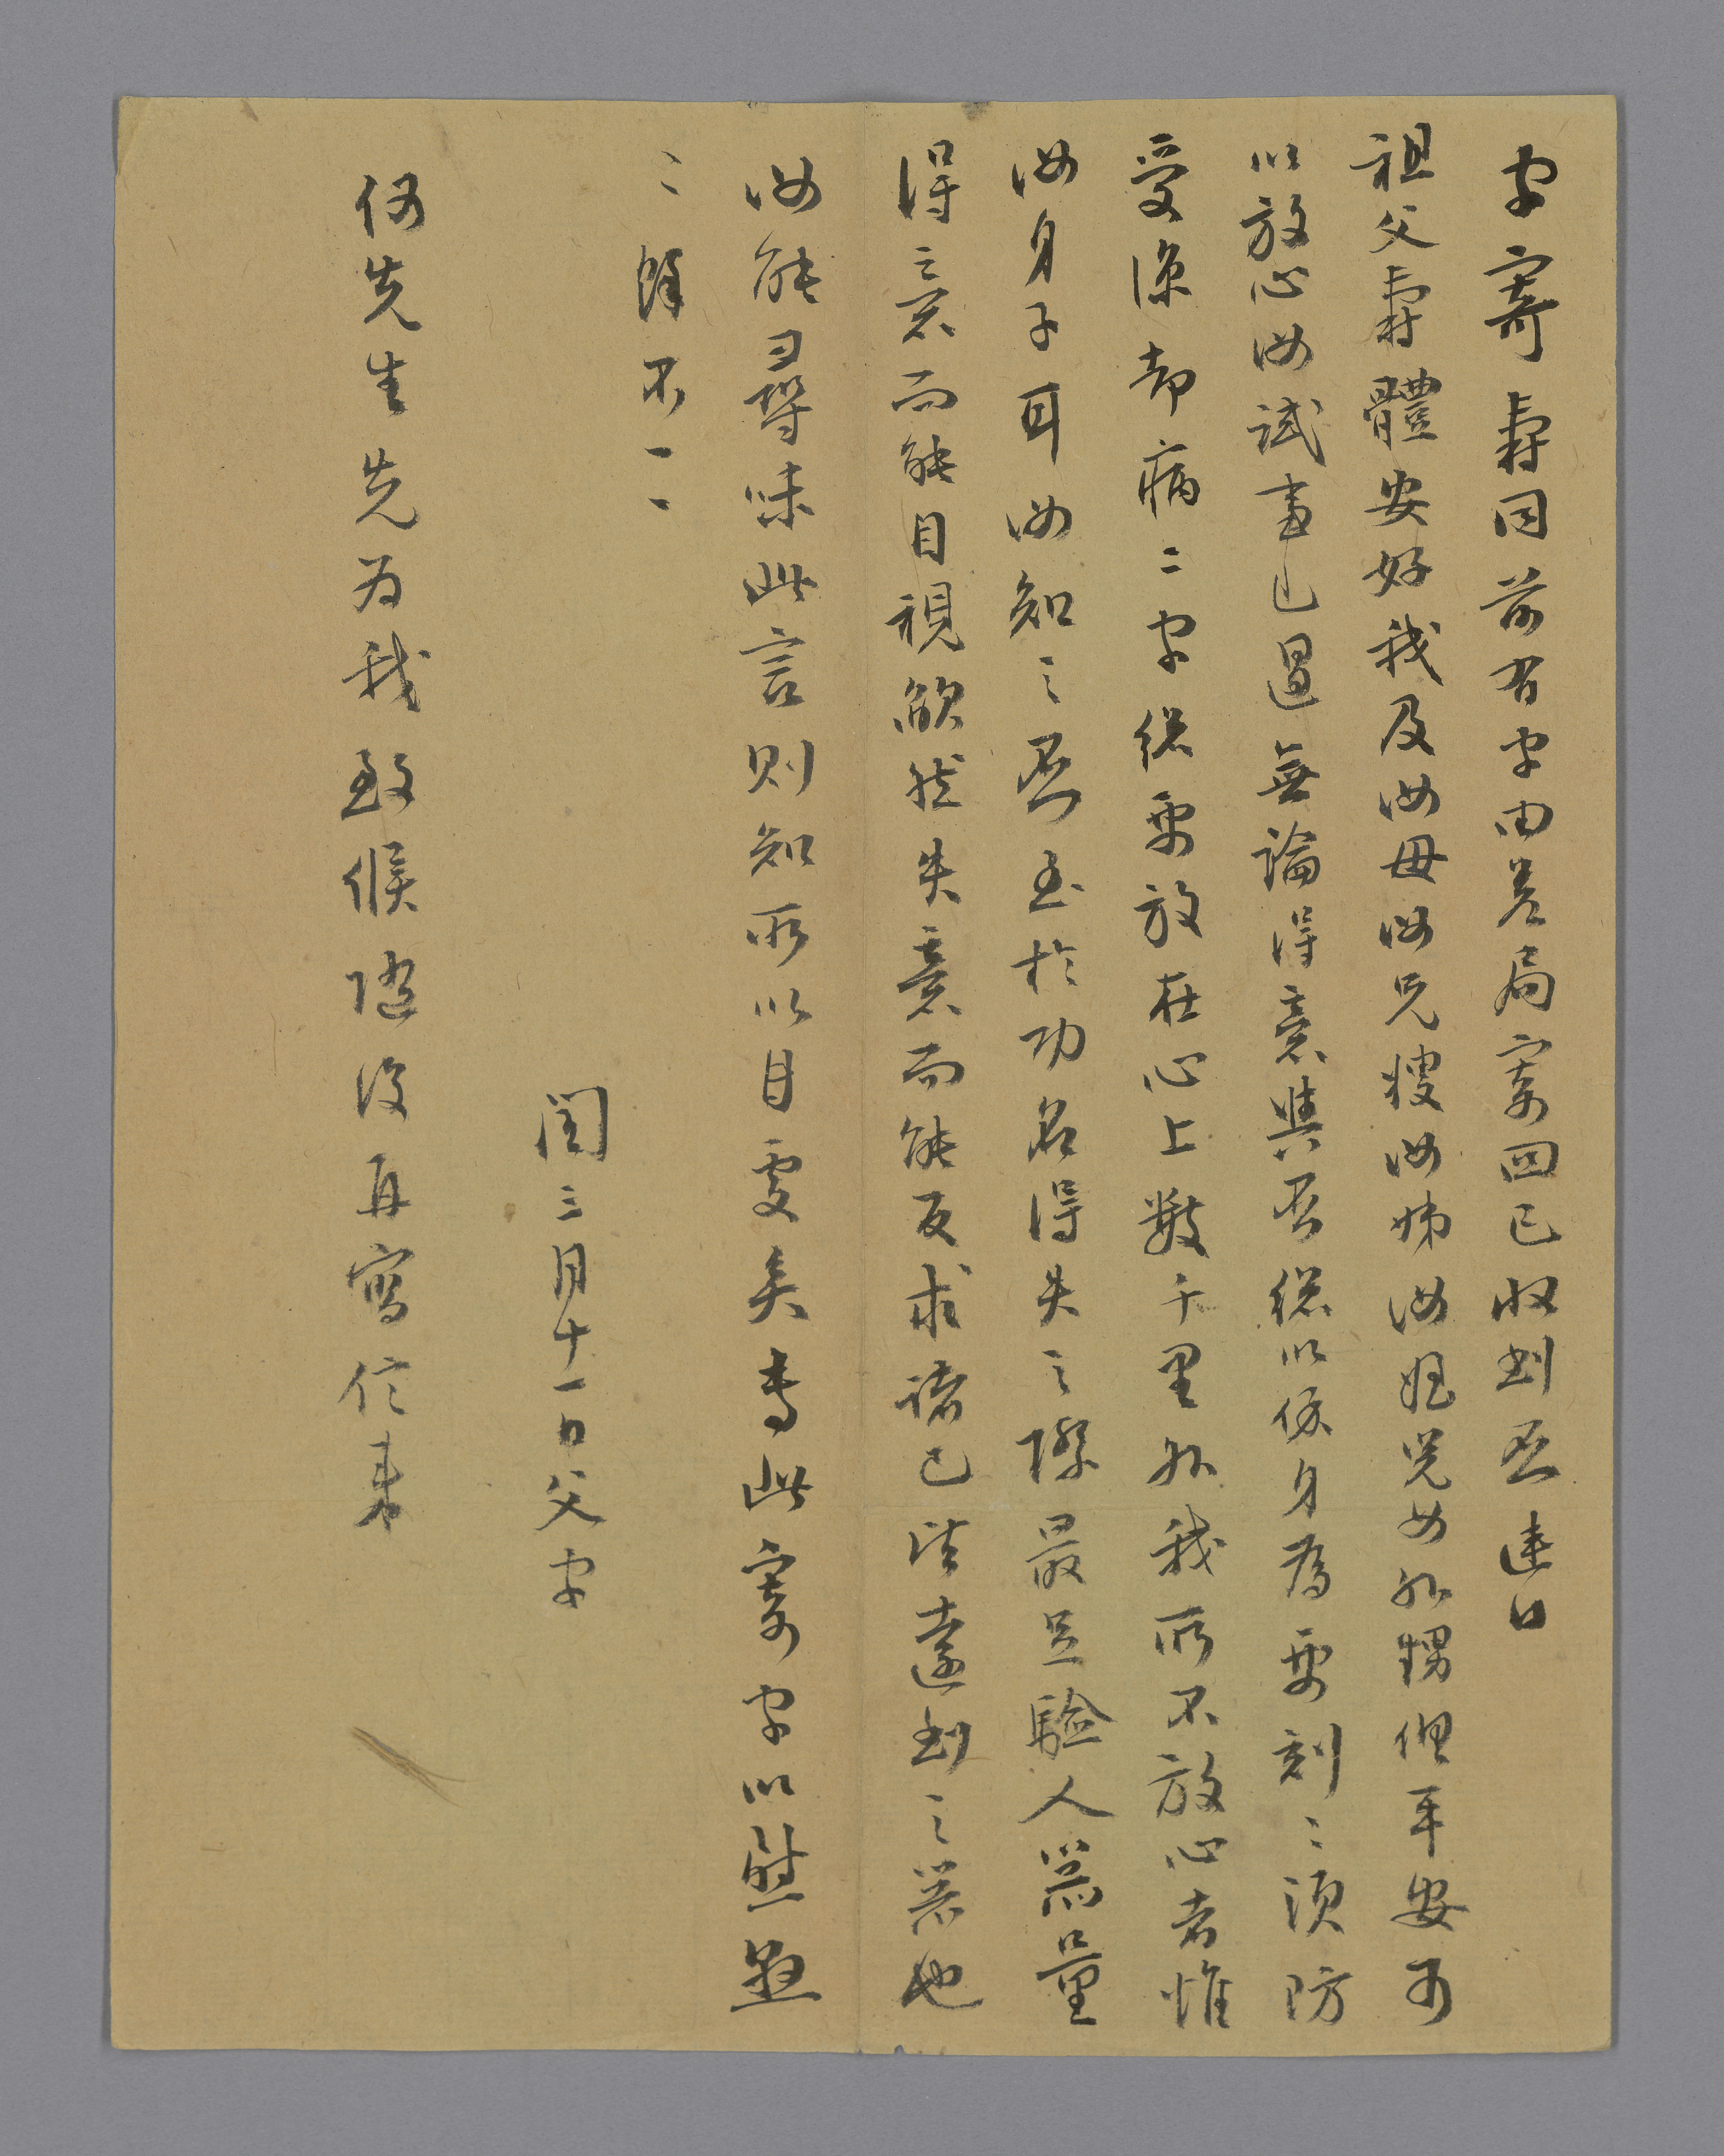 字寄壽同前有字由差局寄回已收到否連日
祖父壽體安好我及汝母汝兄嫂汝姊汝姪兒女外甥俱平安可
以放心汝試事已過無論得意與否總以保身為要刻刻須防
受涼却病二字總要放在心上數千里外我所不放心者惟
汝身子耳汝知之否至於功名得失之際最足驗人器量
得意而能自視欿然失意而能反求諸己皆遠到之器也
汝能尋味此言則知所以自處矣專此寄字以慰懸
懸餘不一一
閏三月十一日父字
何先生先為我致候隨後再寫信來